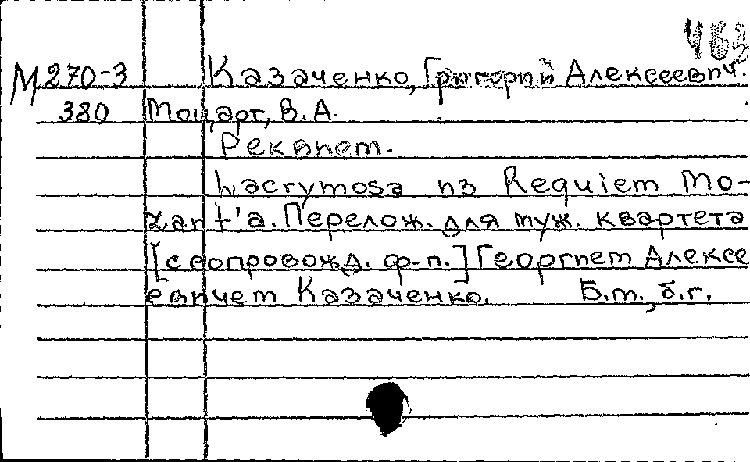 463
М 270-3 Казаченко, Григорий Алексеевич.
380 Моцарт, В. А.
Реквием.
Lacrymosa из Requiem Mo-
zart'a. Перелож. для муж. квартета
[с сопровожд. ф-п.] Георгием Алексе
евичем Казаченко. Б.м., б.г.